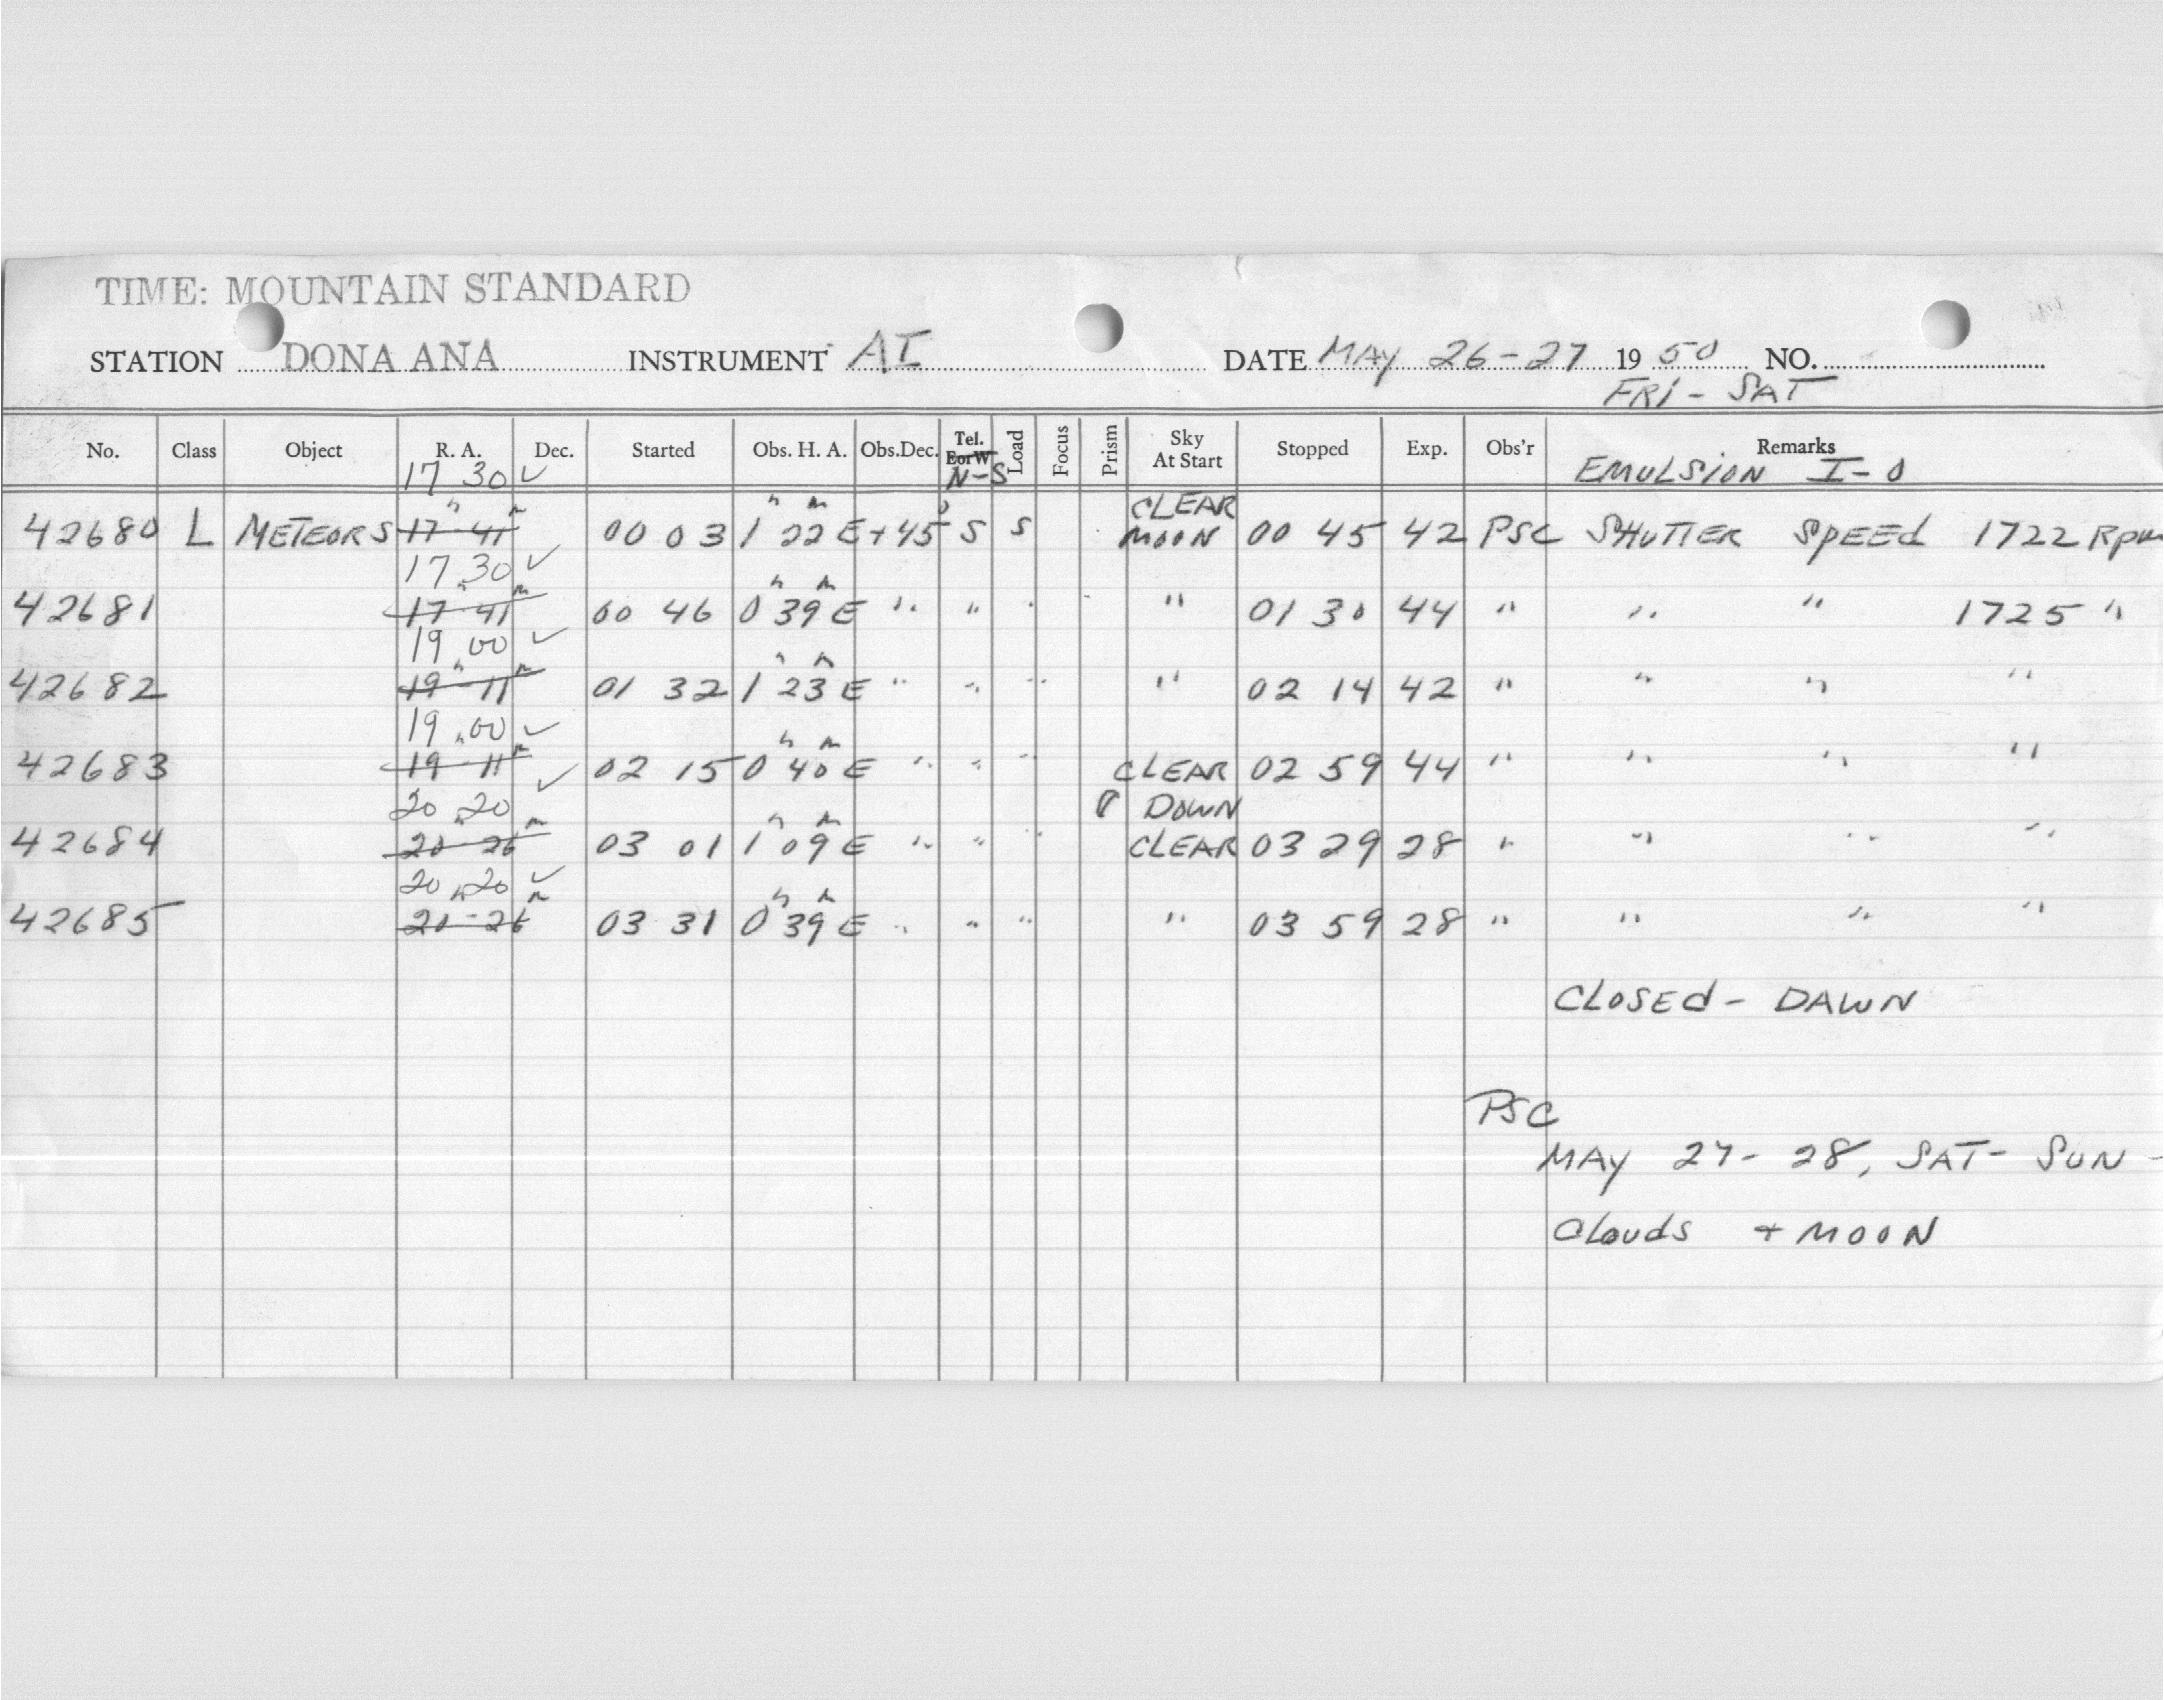 TIME: MOUNTAIN STANDARD
STATION DONA ANA INSTRUMENT AI DATE MAY 26-27 19 50 NO.
FRI - SAT
No. Class Object R. A. Dec. Started Obs. H. A. Obs.Dec. Tel. EorW N-S Load Focus Prism Sky At Start Stopped Exp. Obs'r Remarks
17 30 ✓ EMULSION I-O
CLEAR
42680 L METEORS 17h 41m 00 03 1h 22m E +45° S S MOON 00 45 42 PSC SHUTTER SPEED 1722 Rpm
17 30 ✓
42681 17h 41m 00 46 0h 39m E " " " " 01 30 44 " " " 1725 "
19 00 ✓
42682 19h 11m 01 32 1h 23m E " " " " 02 14 42 " " " "
19 00 ✓
42683 19h 11m 02 15 0h 40m E " " " CLEAR 02 59 44 " " " "
20 20 ✓ DOWN
42684 20h 26m 03 01 1h 09m E " " " CLEAR 03 29 28 " " " "
20 20 ✓
42685 20h 26m 03 31 0h 39m E " " " " 03 59 28 " " " "
CLOSEd - DAWN
PSC
MAY 27-28, SAT- SUN -
Clouds + MOON